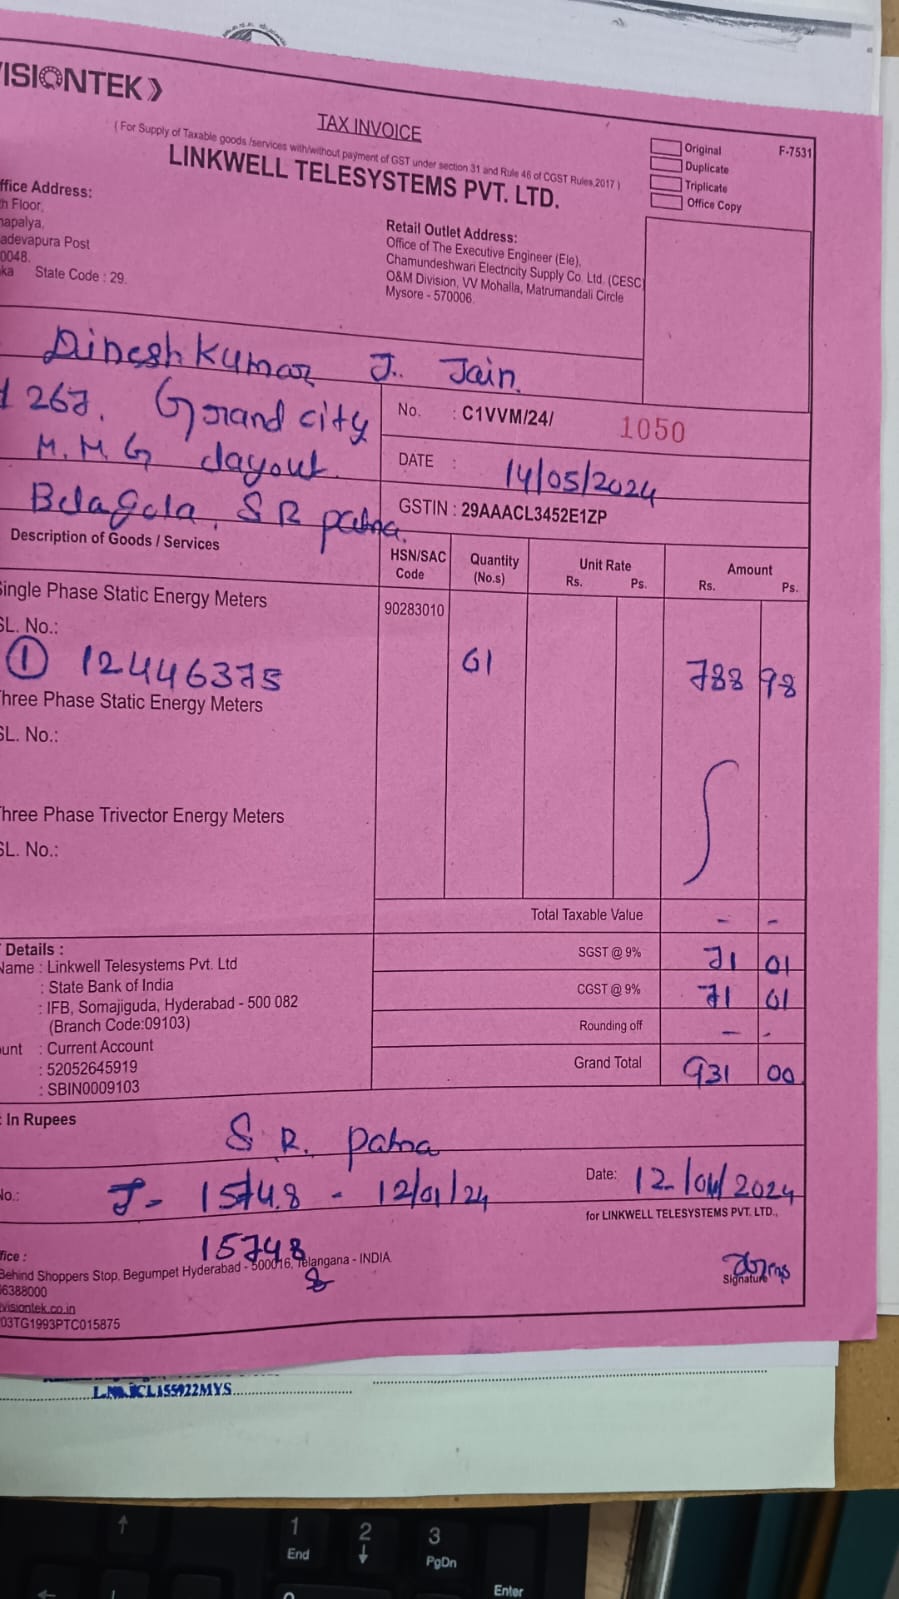 VISIONTEK
TAX INVOICE
( For Supply of Taxable goods /services with/without payment of GST under section 31 and Rule 46 of CGST Rules,2017 )
LINKWELL TELESYSTEMS PVT. LTD.
Original
Duplicate
Triplicate
Office Copy
F-7531
ffice Address:
h Floor,
napalya,
adevapura Post
0048.
ka State Code : 29.
Retail Outlet Address:
Office of The Executive Engineer (Ele),
Chamundeshwari Electricity Supply Co. Ltd. (CESC
O&M Division, VV Mohalla, Matrumandali Circle
Mysore - 570006.
Dinesh Kumar J. Jain.
267. Grand city
M.M.G layout
Belagola, S R patna.
No. : C1VVM/24/ 1050
DATE : 14/05/2024
GSTIN : 29AAACL3452E1ZP
Description of Goods / Services
HSN/SAC Code
Quantity (No.s)
Unit Rate
Rs. Ps.
Amount
Rs. Ps.
Single Phase Static Energy Meters
90283010
SL. No.:
① 12446375 01 788 98
Three Phase Static Energy Meters
SL. No.:
Three Phase Trivector Energy Meters
SL. No.:
Total Taxable Value - -
SGST @ 9% 71 01
CGST @ 9% 71 01
Rounding off - -
Grand Total 931 00
Details :
Name : Linkwell Telesystems Pvt. Ltd
: State Bank of India
: IFB, Somajiguda, Hyderabad - 500 082
(Branch Code:09103)
ount : Current Account
: 52052645919
: SBIN0009103
: In Rupees
S R. patna
No.: J- 15748 - 12/01/24
Date: 12/04/2024
15748
for LINKWELL TELESYSTEMS PVT. LTD.,
Signature
ffice :
Behind Shoppers Stop, Begumpet Hyderabad - 500016, Telangana - INDIA
6388000
visiontek.co.in
03TG1993PTC015875
1
End
2
3
PgDn
Enter